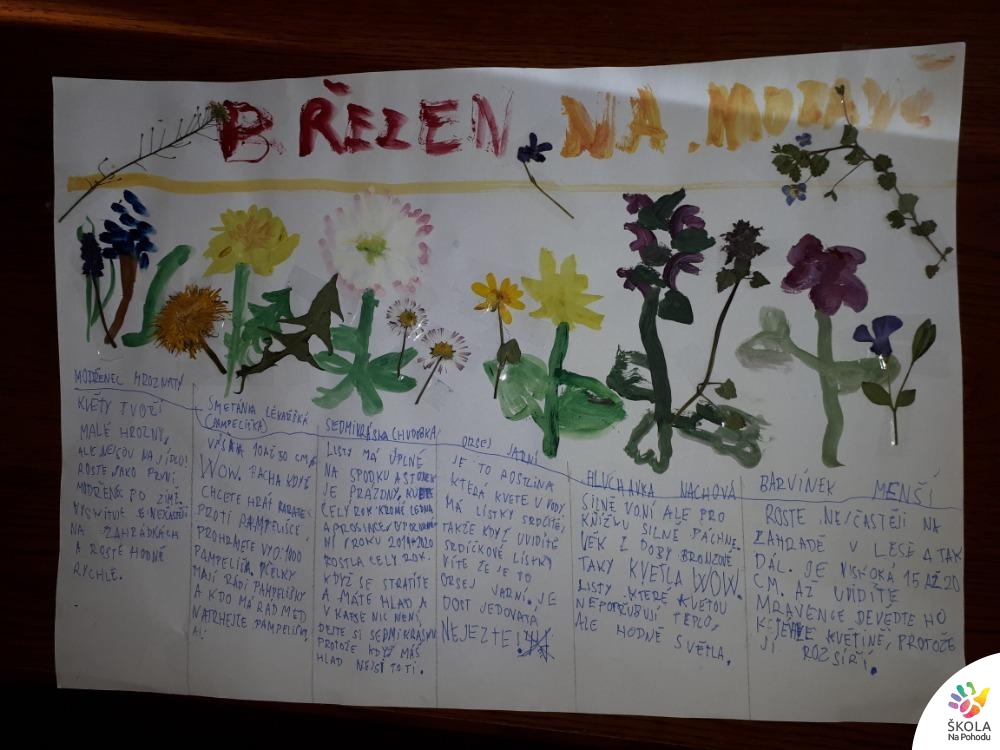 BŘEZEN NA
MODŘENEC HROZNATÝ
KVĚTY TVOŘÍ
MALÉ HROZNY,
ALE NEJSOU NA JÍDLO!
ROSTE JAKO PRVNÍ
MODŘENEC PO ZIMĚ.
VISKITUJE SE NEJČASTĚJI
NA ZAHRÁDKÁCH
A ROSTE HODNĚ
RYCHLE.
SMETÁNKA LÉKAŘSKÁ
(PAMPELIŠKA)
VÝŠKA 10 AŽ 50 CM
WOW. PACHA KDYŽ
CHCETE HRÁT KARATE
PROTI PAMPELIŠCE
PROHRAJETE VY 0:1000
PAMPELIŠKA. VČELKY
MAJÍ RÁDI PAMPELIŠKY
A KDO MÁ RÁD MED
NATRHEJTE PAMPELIŠKY,
SEDMIKRÁSKA CHUDOBKA
LISTY MÁ ÚPLNĚ
NA SPODKU A STONEK
JE PRÁZDNÝ, KVETE
CELÝ ROK KROMĚ LEDNA
A PROSINCE
NÍ ROKU 2019+2020
ROSTLA CELÝ ROK.
KDYŽ SE STRATÍTE
A MÁTE HLAD A
V KAPSE NIC NENÍ,
DEJTE SI SEDMIKRÁSKU
PROTOŽE KDYŽ MÁŠ
HLAD NEJSI TO TI.
ORSEJ JARNÍ
JE TO ROSTLINA
KTERÁ KVETE U VODY.
MÁ LÍSTKY SRDČITÉ,
TAKŽE KDYŽ UVIDÍTE
SRDÍČKOVÉ LÍSTKY
VÍTE ŽE JE TO
ORSEJ JARNÍ. JE
DOST JEDOVATÁ
NEJEZTE!
HLUCHAVKA NACHOVÁ
SILNĚ VONÍ ALE PRO
KNÍŽKU SILNĚ PÁCHNE.
VĚK Z DOBY BRONZOVÉ
TAKY KVETLA WOW.
LISTY KTERÉ KVETOU
NEPOTŘEBUJÍ TEPLO,
ALE HODNĚ SVĚTLA.
BARVÍNEK MENŠÍ
ROSTE NEJČASTĚJI NA
ZAHRADĚ V LESE A TAK
DÁL. JE VISOKÁ 15 AŽ 20
CM. AŽ UVIDÍTE
MRAVENCE DEVĚDTE HO
KVĚTINĚ, PROTOŽE
JI ROZŠÍŘÍ.
ŠKOLA
Na Pohodu